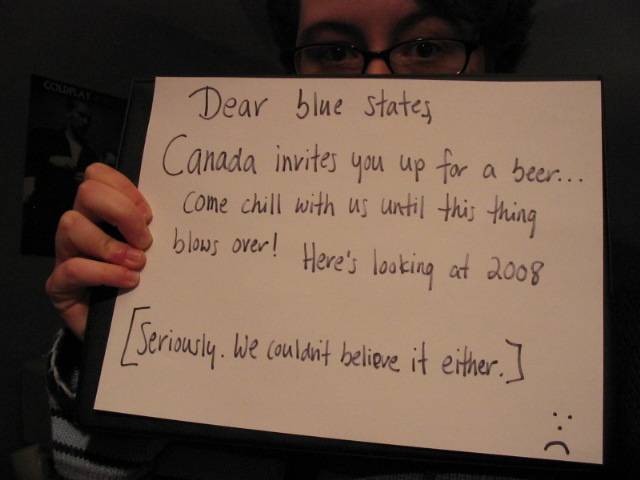 COLDPLAY
Dear blue states,
Canada invites you up for a beer...
Come chill with us until this thing
blows over! Here's looking at 2008
[Seriously. We couldn't believe it either.]
:(